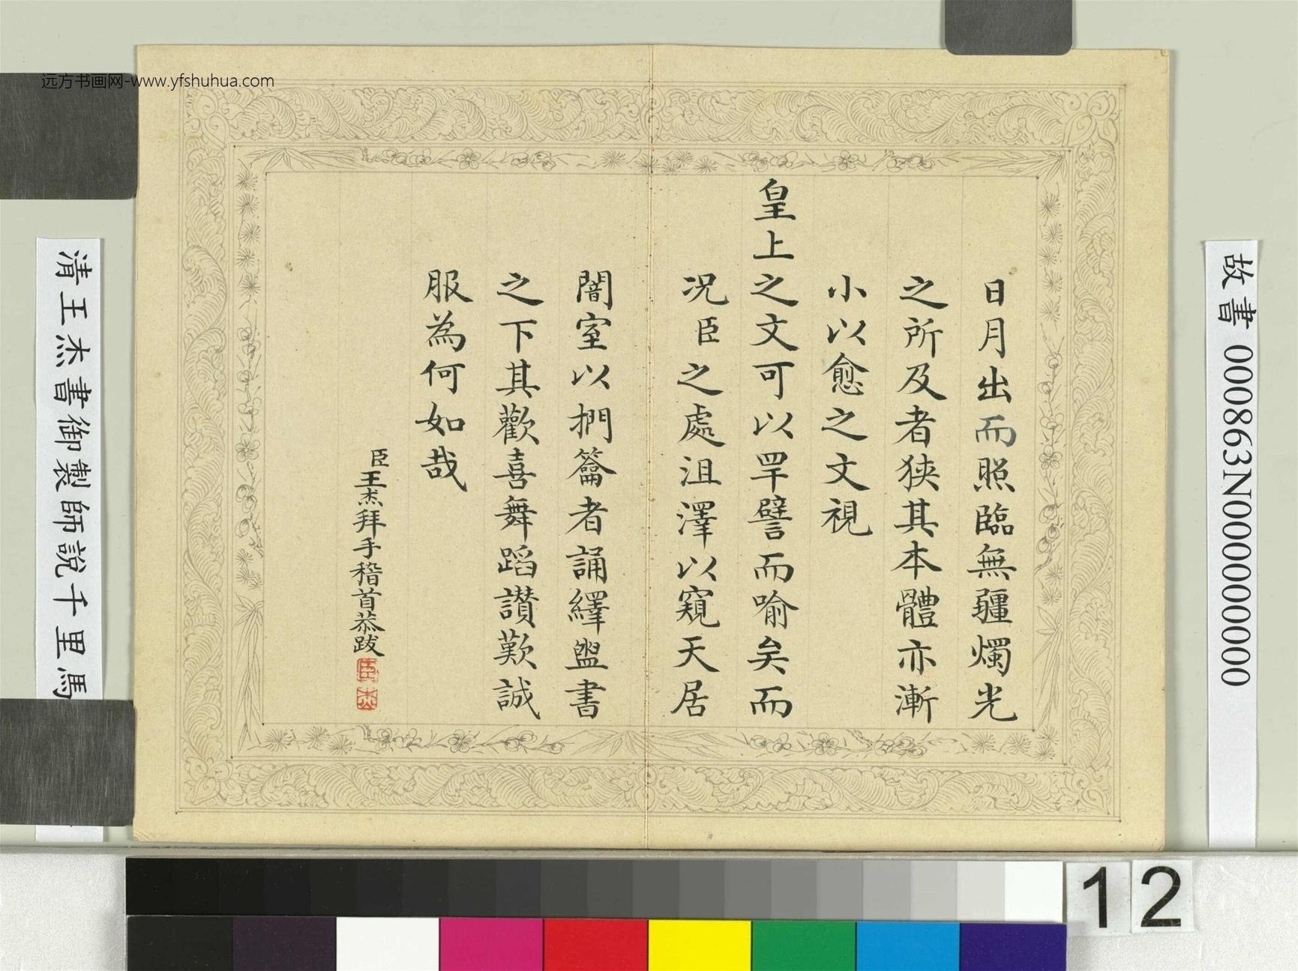 远方书画网-www.yfshuhua.com
故書 000863N000000000
日月出而照臨無疆燭光
之所及者狹其本體亦漸
小以愈之文視
皇上之文可以罕譬而喻矣而
况臣之處沮澤以窺天居
闇室以捫籥者誦繹盥書
之下其歡喜舞蹈讃歎誠
服為何如哉
臣王杰拜手稽首恭跋
臣
杰
清王杰書御製師說千里馬
12